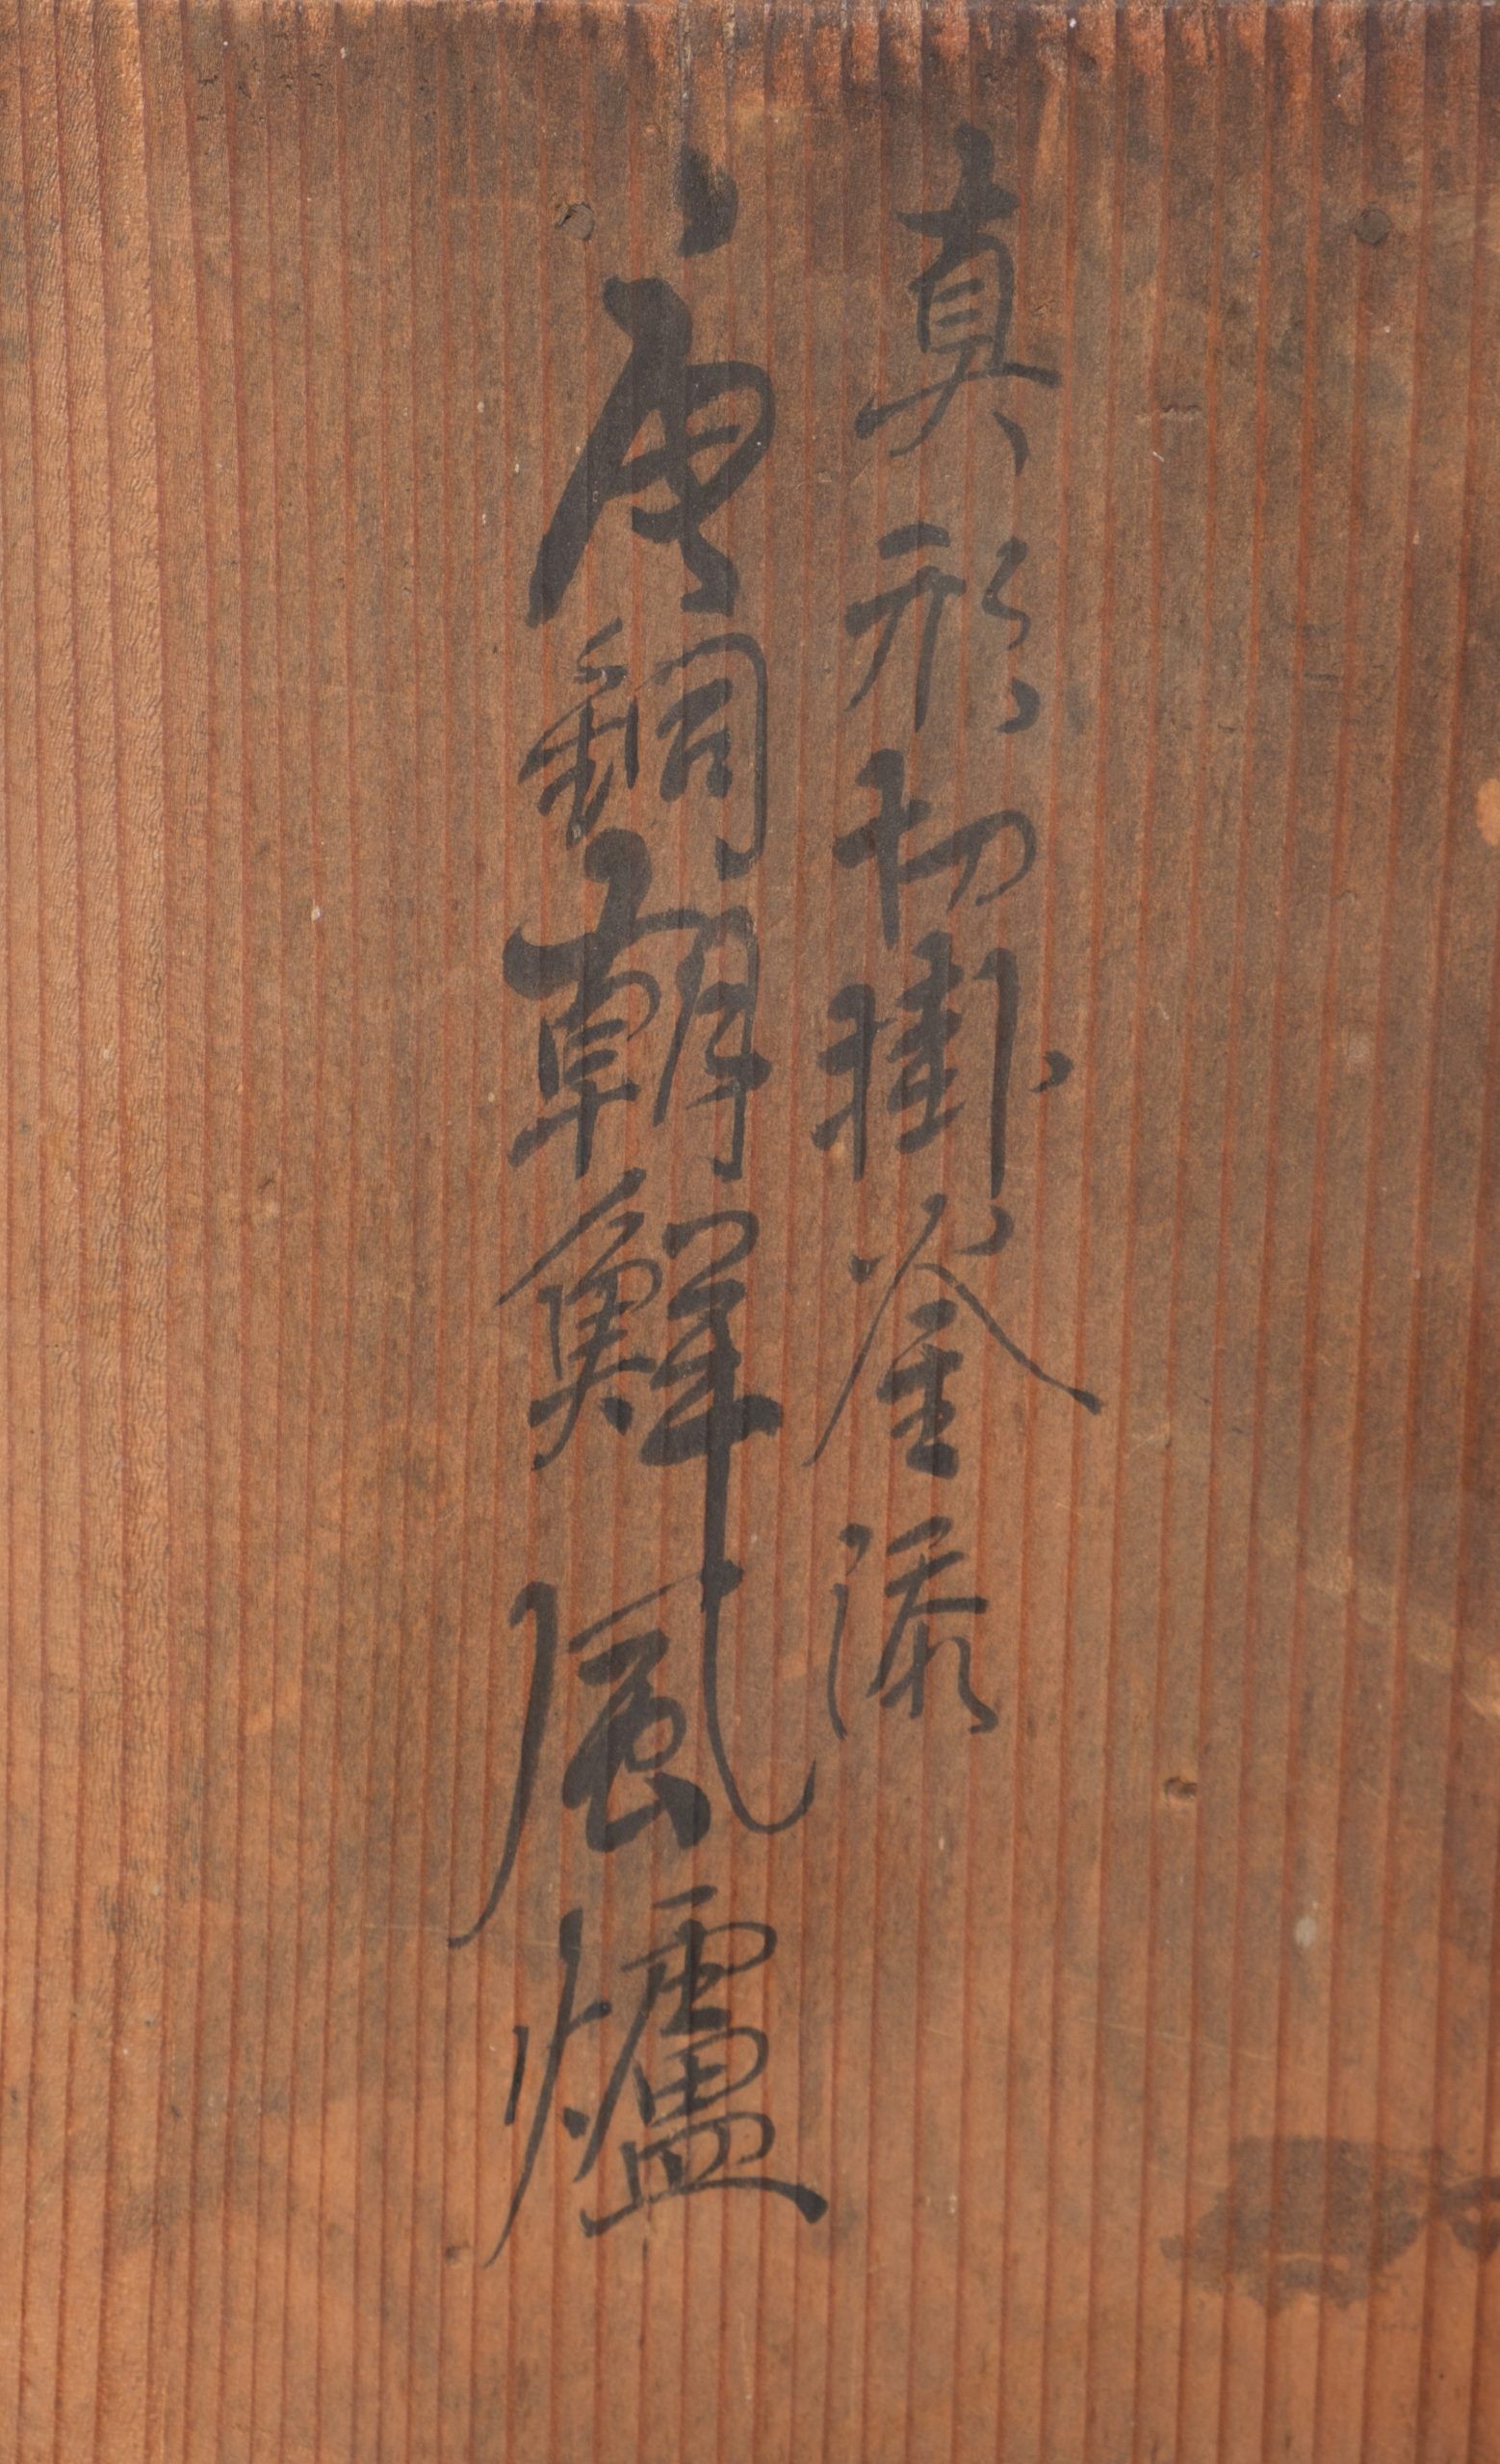 真形切掛釜添
唐銅朝鮮風爐